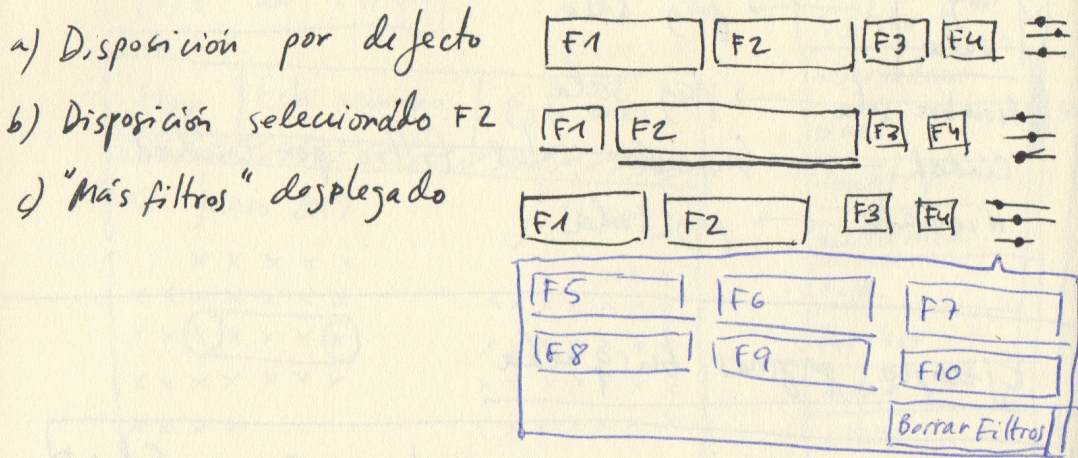 a) Disposición por defecto F1 F2 F3 F4
b) Disposición seleccionádo F2 F1 F2 F3 F4
c) "Más filtros" desplegado
F1 F2 F3 F4
F5 F6 F7
F8 F9 F10
Borrar Filtros